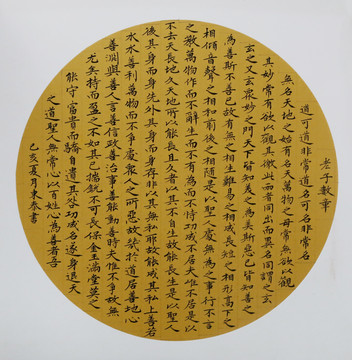 老子數章
道可道非常道名可名非常名
無名天地之始有名天萬物之母常無欲以觀
其妙常有欲以觀其徼此兩者同出而異名同謂之玄
玄之又玄眾妙之門天下皆知美之為美斯惡已皆知善之
為善斯不善已故有無之相生難易之相成長短之相形高下之
相傾音聲之相和前後之相隨是以聖人處無為之事行不言
之教萬物作而不辭生而不有為而不恃功成不居夫唯不居是以
不去天長地久天地所以能長且久者以其不自生故能長生是以聖人
後其身而身先外其身而身存非以其無私耶故能成其私上善若
水水善利萬物而不爭處眾人之所惡故幾於道居善地心
善淵與善人言善信政善治事善能動善時夫唯不爭故無
尤矣持而盈之不如其已揣銳不可長保金玉滿堂莫之
能守富貴而驕自遺其咎功成名遂身退天
之道聖人無常心以百姓心為善者吾
己亥夏月東泰書